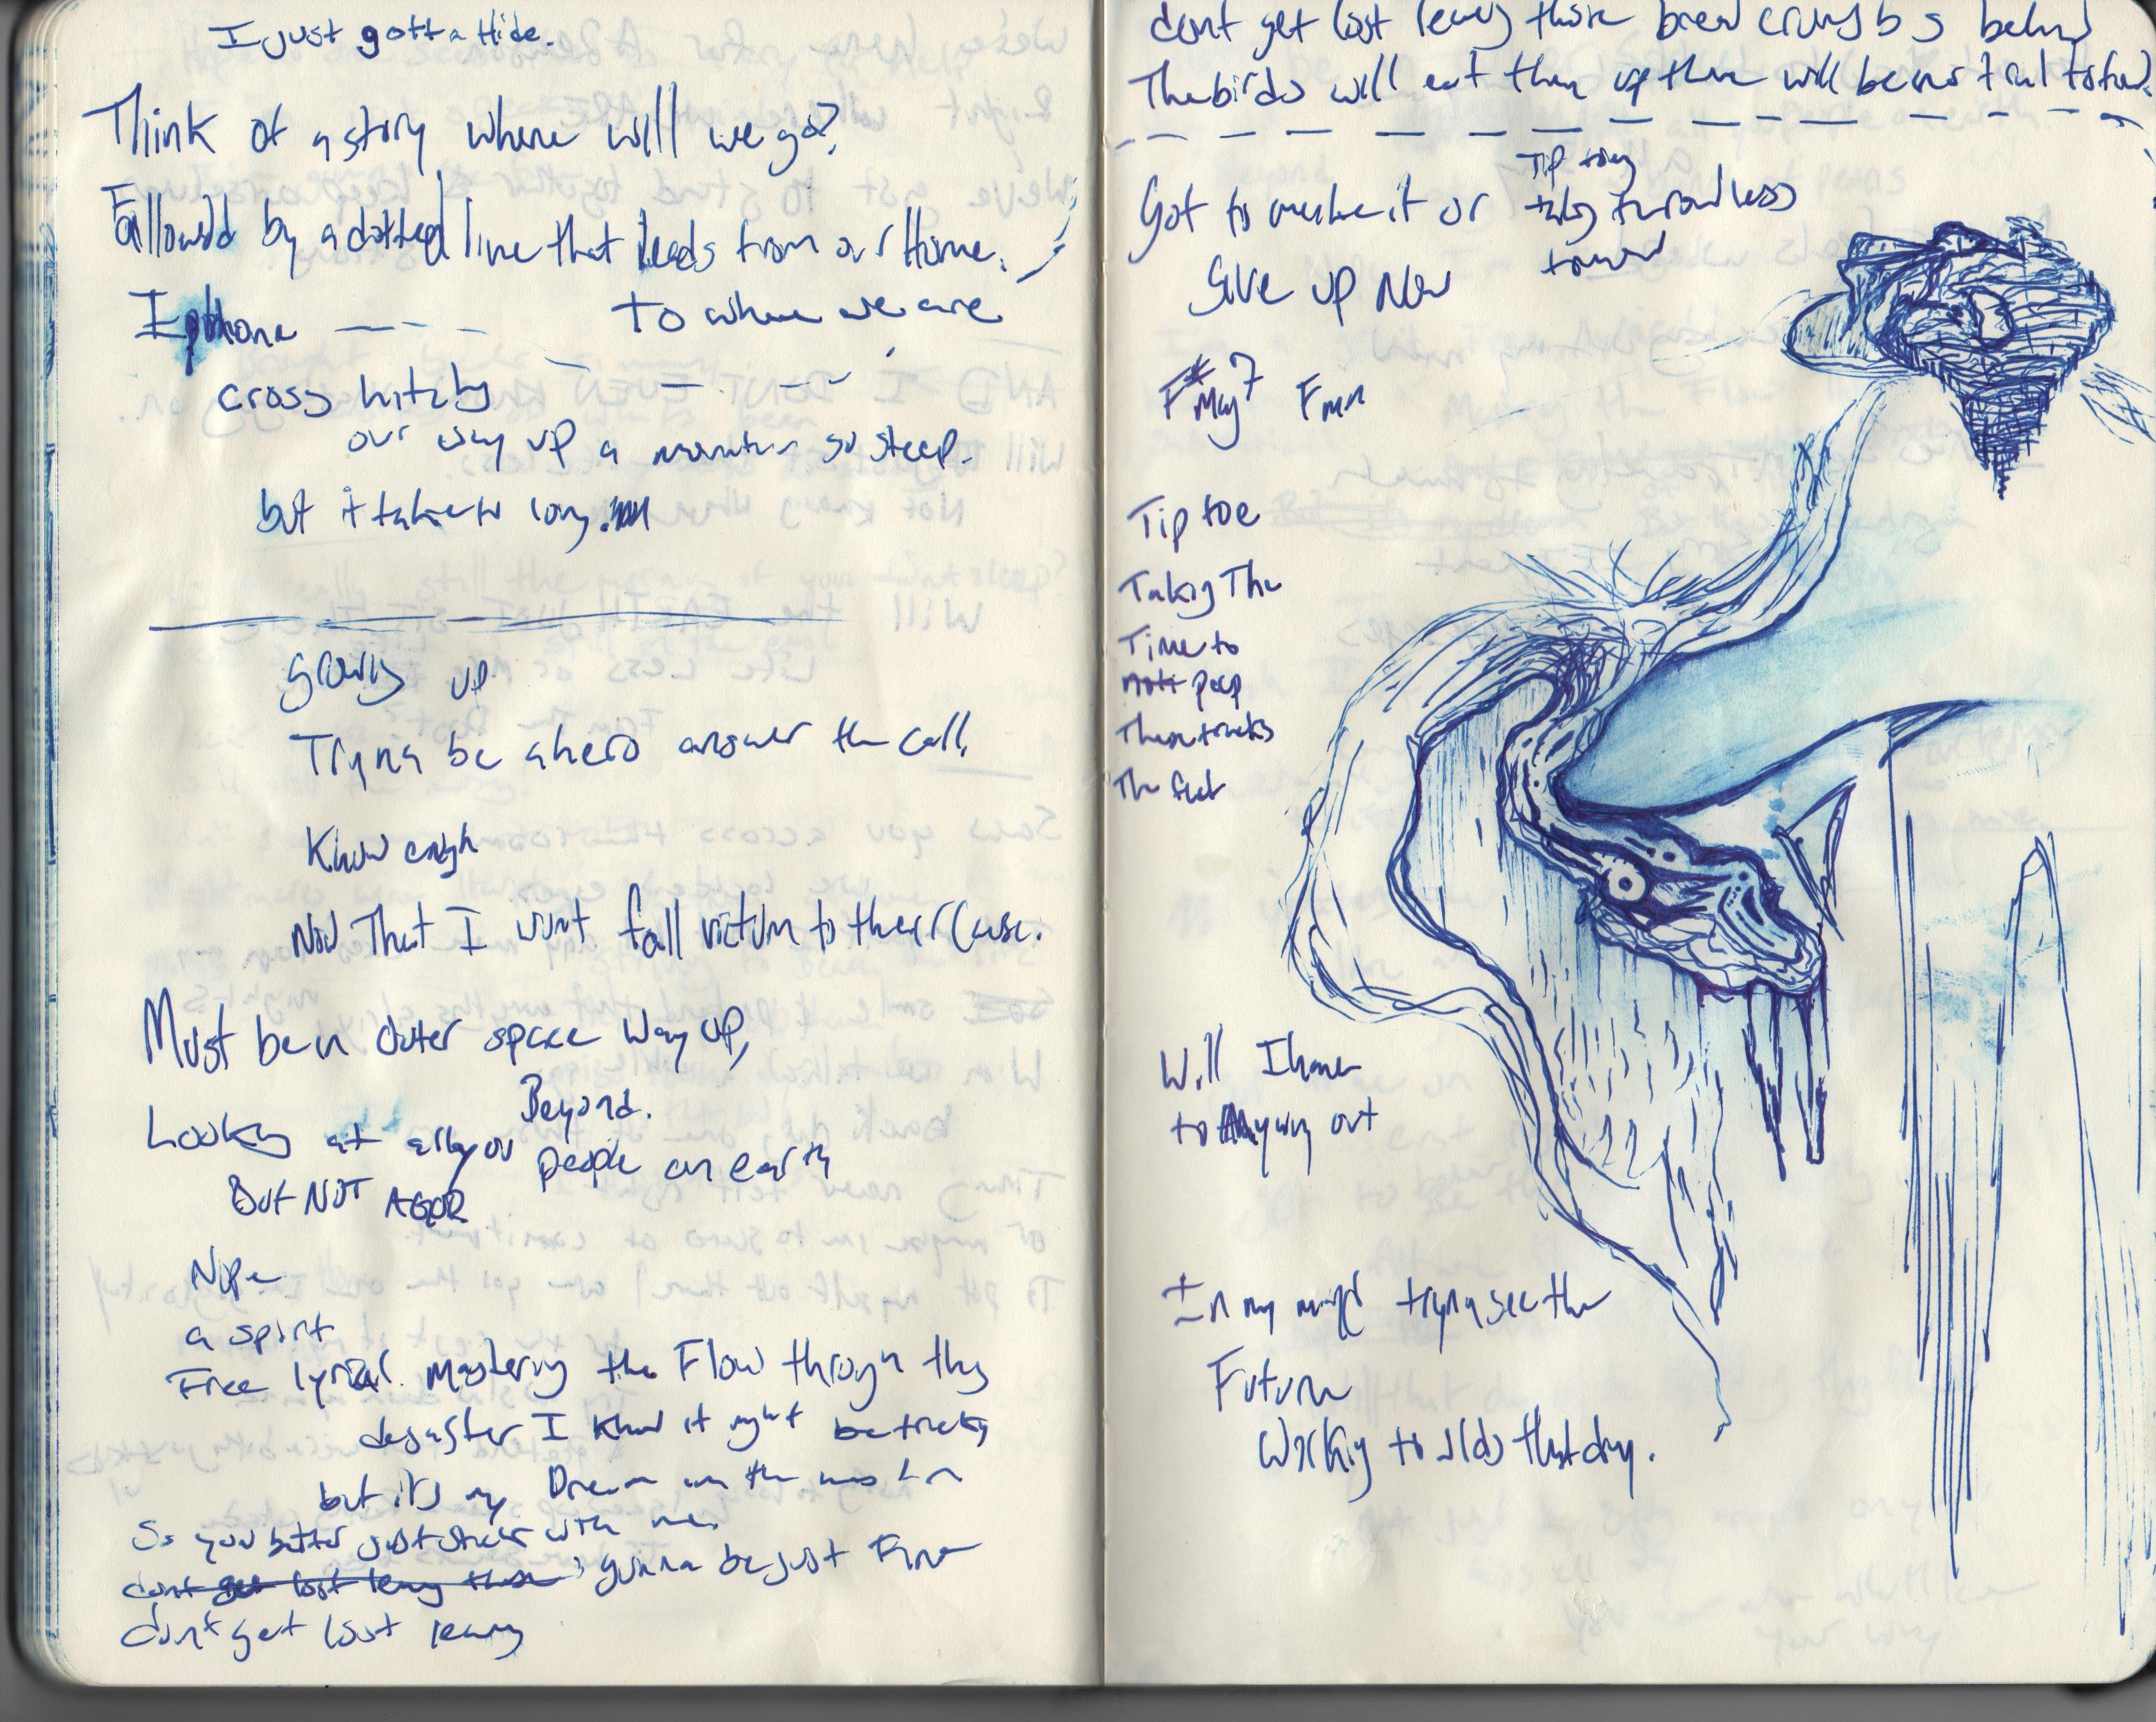 I just gotta Hide.
Think of a story where will we go?
Followd by a dotted line that leads from our Home.
to where we are
I phone
cross
our way up a so steep.
but it
growing up
Tryna be a hero answer the call,
Know
Now That I wont fall victim to their
Must be n outer space way up,
Beyond.
Looking at all you people on earth
But NOT
Nope
a spirt
Free lyrical. mastering the Flow through this
desaster I know it might be tricky
but it's my Dream
So you better just with me.
dont get lost leavg those gunna be just Fine
don't get lost leavg
dont get lost leavg those bread crumbs behind
The birds will eat them up there will be no trail to find.
Got to make it or
Tip toeing
taking
Give up Now
F# Maj7 Fmin
Tip toe
Taking The
Time to
not peep
These tracks
The feet
Will I have
to way out
In my mind tryna see the
Future
Working to that day.